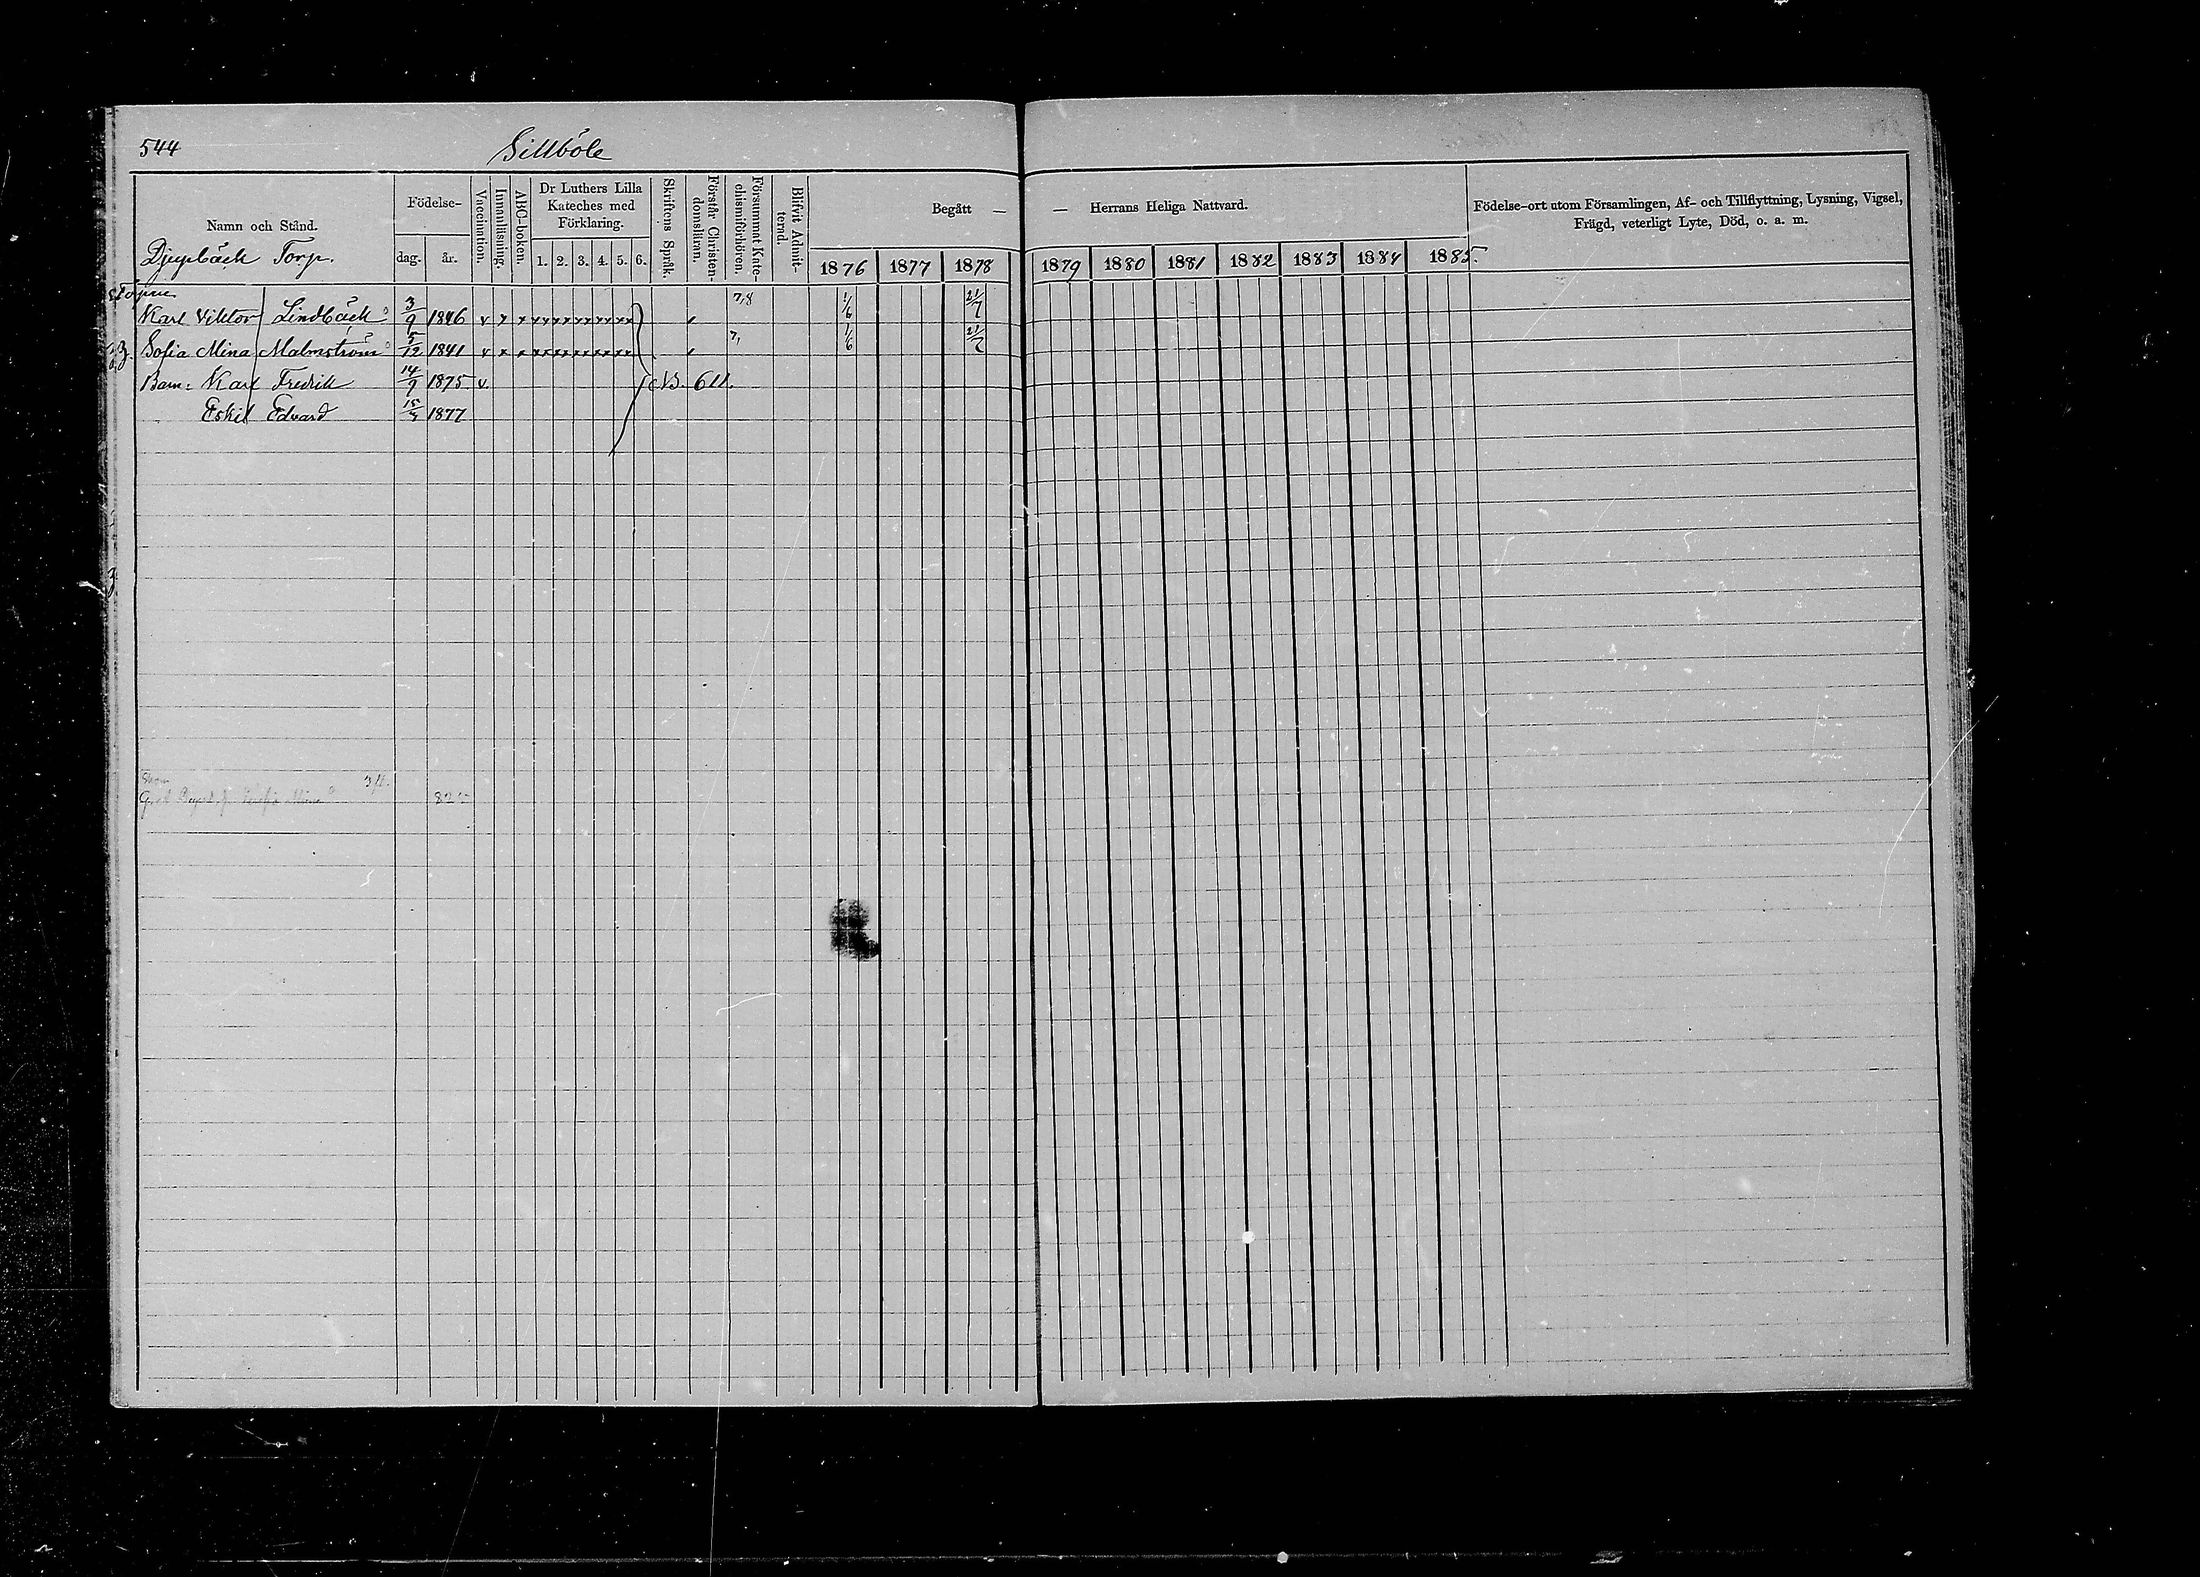 544
Sillböle
Namn och Stånd.
Födelse-
dag.
år.
Vaccination.
Innanläsning.
ABC-boken.
Dr Luthers Lilla
Kateches med
Förklaring.
1. 2. 3. 4. 5. 6.
Skriftens Språk.
Förstår Christen-
domsläran.
Försummat Kate-
chismiförhören.
Blifvit Admit-
terad.
Begått —
— Herrans Heliga Nattvard.
1876 1877 1878 1879 1880 1881 1882 1883 1884 1885.
Födelse-ort utom Församlingen, Af- och Tillflyttning, Lysning, Vigsel,
Frägd, veterligt Lyte, Död, o. a. m.
Djupbäck Torp.
Karl Viktor Lindbäck 3/9 1846 7,8 1/6 21/7
Sofia Mina Malmström 5/12 1841 7, 1/6 21/7
Barn: Karl Fredrik 14/9 1875 v. 611.
Eskil Edvard 1877